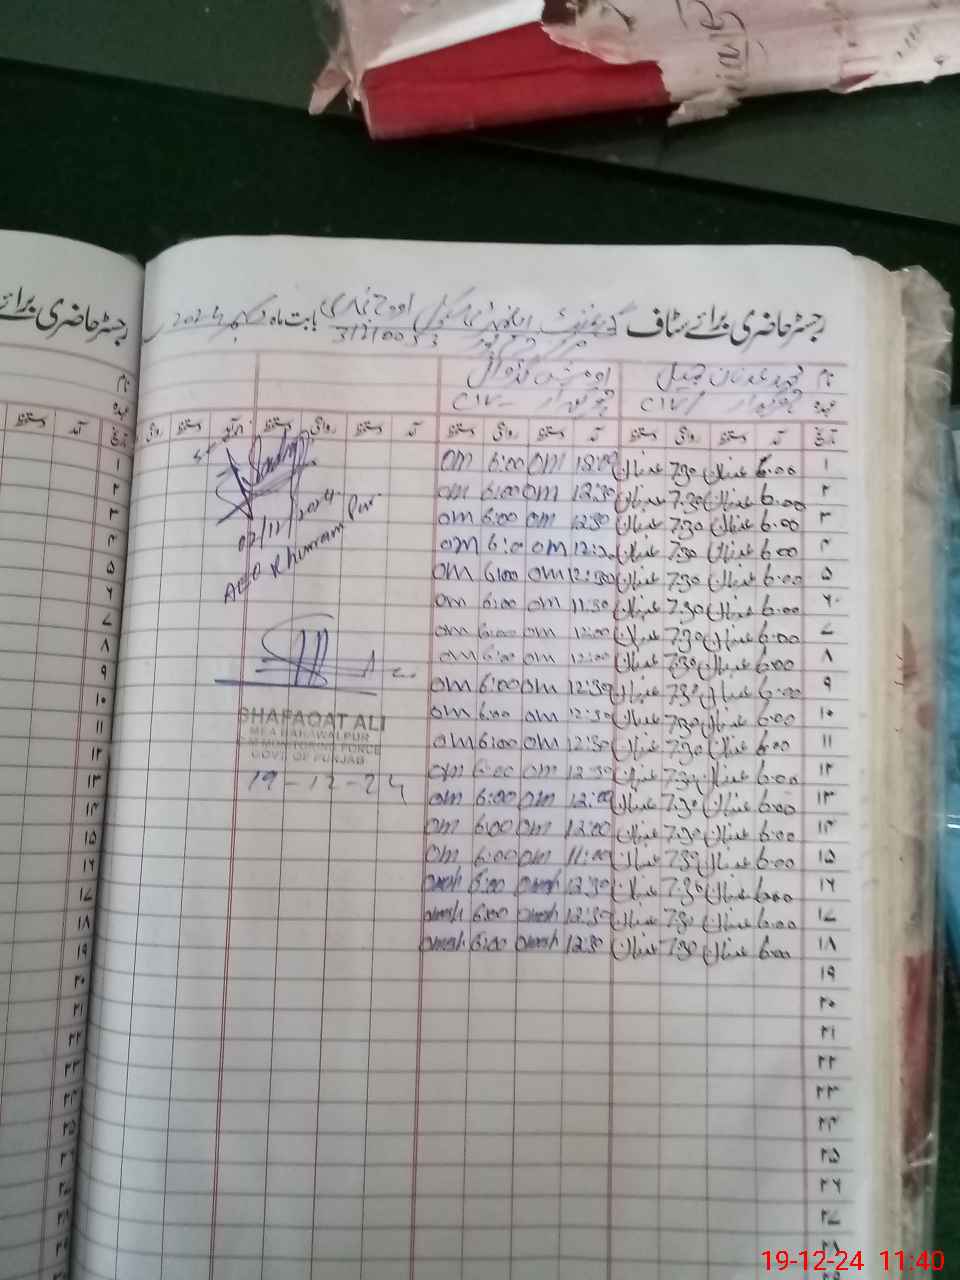 رجسٹر حاضری برائے سٹاف گورنمنٹ بابت ماہ دسمبر 2024
31210053
نام محمد عدنان جمیل
عہدہ چوکیدار C-IV چوکیدار C-IV
تاریخ آمد دستخط روانگی دستخط آمد دستخط روانگی دستخط آمد دستخط روانگی دستخط آمد دستخط روانگی
۱ 6:00 عدنان 7:30 عدنان om 6:00 om
۲ 6:00 عدنان 7:30 عدنان 12:30 om 6:00 om
۳ 6:00 عدنان 7:30 عدنان 12:30 om 6:00 om
۴ 6:00 عدنان 7:30 عدنان om 6:00 om
۵ 6:00 عدنان 7:30 عدنان 12:30 om 6:00 om
۶ 6:00 عدنان 7:30 عدنان 11:30 om 6:00 om
۷ 6:00 عدنان 7:30 عدنان 12:00 om 6:00 om
۸ 6:00 عدنان 7:30 عدنان 12:00 om 6:00 om
۹ 6:00 عدنان 7:30 عدنان 12:30 om 6:00 om
۱۰ 6:00 عدنان 7:30 عدنان 12:30 om 6:00 om
۱۱ 6:00 عدنان 7:30 عدنان 12:30 om 6:00 om
۱۲ 6:00 عدنان 7:30 عدنان 12:30 om 6:00 om
۱۳ 6:00 عدنان 7:30 عدنان 12:00 om 6:00 om
۱۴ 6:00 عدنان 7:30 عدنان 12:00 om 6:00 om
۱۵ 6:00 عدنان 7:30 عدنان 11:00 om 6:00 om
۱۶ 6:00 عدنان 7:30 عدنان 12:30 omesh 6:00 omesh
۱۷ 6:00 عدنان 7:30 عدنان 12:30 omesh 6:00 omesh
۱۸ 6:00 عدنان 7:30 عدنان 12:30 omesh 6:00 omesh
۱۹
۲۰
۲۱
۲۲
۲۳
۲۴
۲۵
۲۶
۲۷
۲۸
02/12/2024
AEO Khurram Pur
SHAFAQAT ALI
MEA BAHAWALPUR
CM MONITORING FORCE
GOVT OF PUNJAB
19-12-24
رجسٹر حاضری برائے
نام
عہدہ
تاریخ آمد دستخط
۱
۲
۳
۴
۵
۶
۷
۸
۹
۱۰
۱۱
۱۲
۱۳
۱۴
۱۵
۱۶
۱۷
۱۸
۱۹
۲۰
۲۱
۲۲
۲۳
۲۴
۲۵
۲۶
۲۷
۲۸
۲۹
19-12-24 11:40